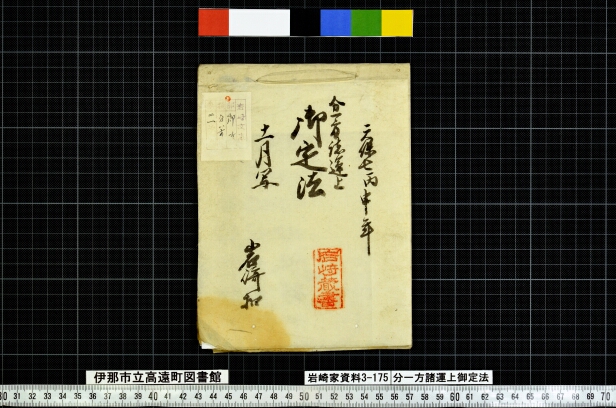 天保七丙申年
分一方諸運上
御定法
十一月写
岩崎扣
岩崎蔵書
二
伊那市立高遠町図書館
岩崎家資料3-175
分一方諸運上御定法
30 31 32 33 34 35 36 37 38 39 40 41 42 43 44 45 46 47 48 49 50 51 52 53 54 55 56 57 58 59 60 61 62 63 64 65 66 67 68 69 70